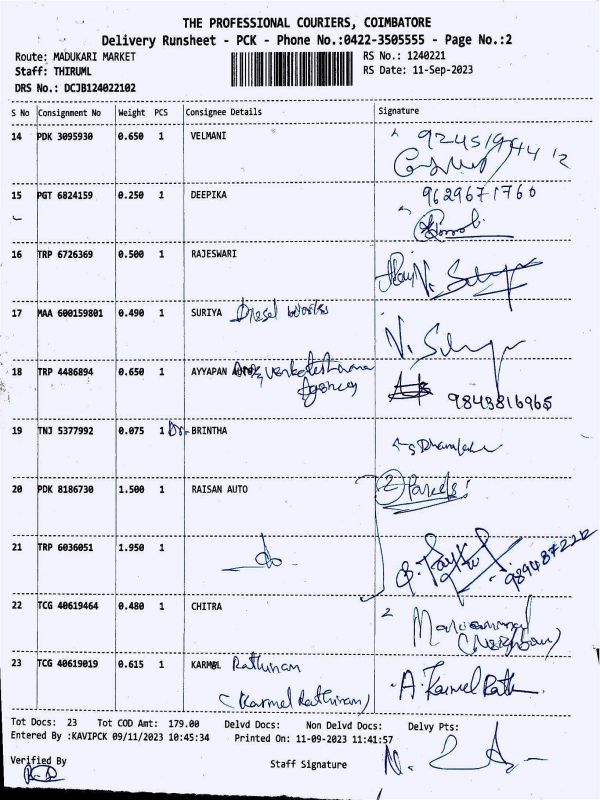 THE PROFESSIONAL COURIERS, COIMBATORE
Delivery Runsheet - PCK - Phone No.:0422-3505555 - Page No.:2
Route: MADUKARI MARKET RS No.: 1240221
Staff: THIRUML RS Date: 11-Sep-2023
DRS No.: DCJB124022102
S No Consignment No Weight PCS Consignee Details Signature
14 PDK 3095930 0.650 1 VELMANI
15 PGT 6824159 0.250 1 DEEPIKA 9629671760
16 TRP 6726369 0.500 1 RAJESWARI
17 MAA 600159801 0.490 1 SURIYA Diesel works
18 TRP 4486894 0.650 1 AYYAPAN
Agency 9843816965
19 TNJ 5377992 0.075 1 Dr. BRINTHA
20 PDK 8186730 1.500 1 RAISAN AUTO 2 Parcels
21 TRP 6036051 1.950 1 do
22 TCG 40619464 0.480 1 CHITRA
(Neighbour)
23 TCG 40619019 0.615 1 KARMEL Rathinam
(Karmel Rathinam) A. Karmel Rath
Tot Docs: 23 Tot COD Amt: 179.00 Delvd Docs: Non Delvd Docs: Delvy Pts:
Entered By :KAVIPCK 09/11/2023 10:45:34 Printed On: 11-09-2023 11:41:57
Verified By Staff Signature